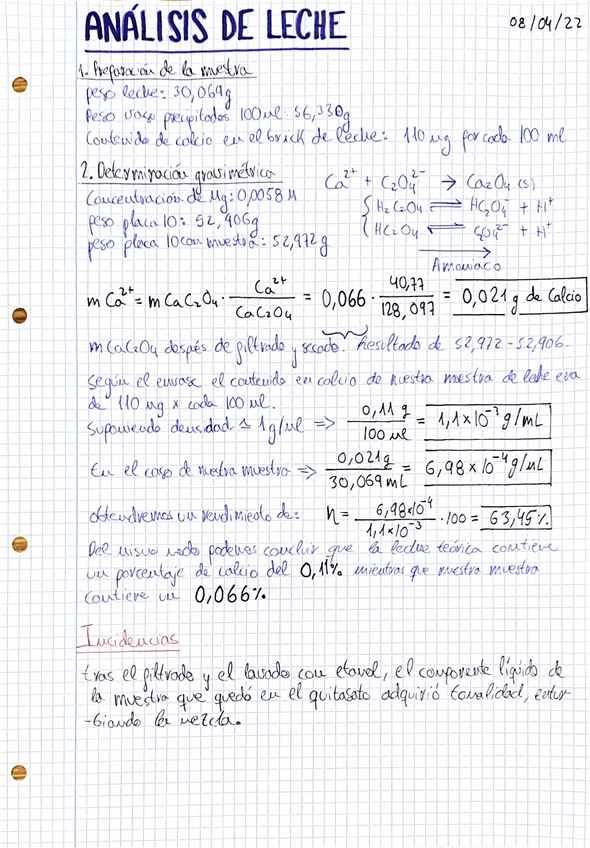 ANÁLISIS DE LECHE
08/04/22
1. Preparación de la muestra
peso leche: 30,069g
Peso vaso precipitados 100ml: 56,330g
Contenido de calcio en el brick de leche: 110 mg por cada 100 ml
2. Determinación gravimétrica
Concentración de Mg: 0,0058 M
peso placa 10: 52,906g
peso placa 10 con muestra: 52,972g
Ca²⁺ + C₂O₄²⁻ → Ca₂O₄ (s)
H₂C₂O₄ ⇌ HC₂O₄⁻ + H⁺
HC₂O₄ ⇌ C₂O₄²⁻ + H⁺
Amoniaco
m Ca²⁺ = m CaC₂O₄ · Ca²⁺ / CaC₂O₄ = 0,066 · 40,77 / 128,097 = 0,021 g de Calcio
m CaC₂O₄ después de filtrado y secado. Resultado de 52,972 - 52,906.
Según el envase el contenido en calcio de nuestra mestra de leche era
de 110 mg x cada 100 ml.
Suponiendo densidad ≃ 1g/ml => 0,11 g / 100 ml = 1,1x10⁻³ g/mL
En el caso de nuestra muestra => 0,021g / 30,069 mL = 6,98 x 10⁻⁴ g/mL
obtendremos un rendimiento de: η = 6,98x10⁻⁴ / 1,1x10⁻³ · 100 = 63,45%
Del mismo modo podemos concluir que la leche teórica contiene
un porcentaje de calcio del 0,11% mientras que nuestra muestra
contiene un 0,066%.
Incidencias
tras el filtrado y el lavado con etanol, el componente líquido de
la muestra que quedó en el quitasato adquirió tonalidad, entur-
-biando la mezcla.